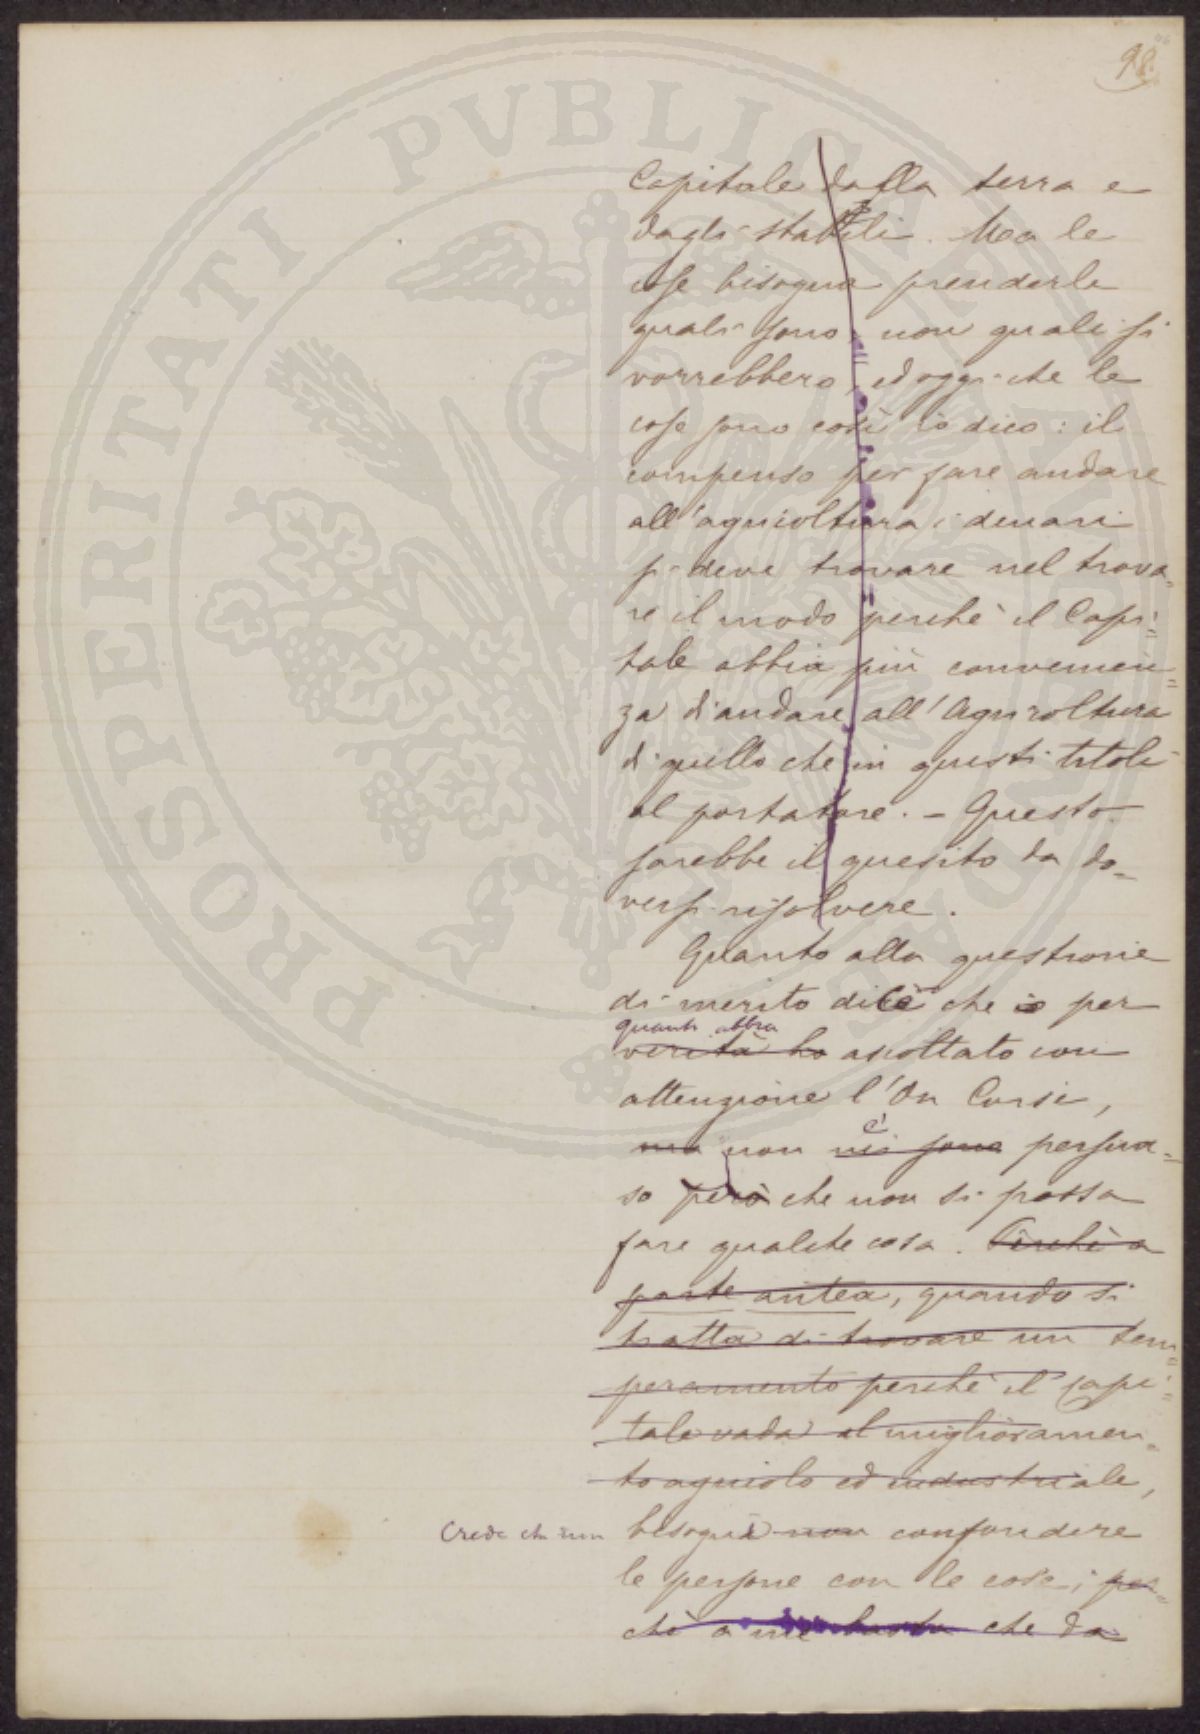 98.
Capitale dalla terra e
dagli stabili. Ma le
cose bisogna prenderle
quali sono, non quali si
vorrebbero, ed oggi che le
cose sono così io dico: il
compenso per fare andare
all'agricoltura i denari
si deve trovare nel trova=
re il modo perchè il Capi=
tale abbia più convenien=
za di andare all'Agricoltura
di quello che in questi titoli
al portatore. – Questo
sarebbe il quesito da do=
versi risolvere.
Quanto alla questione
di merito dice che io per
quanto abbia
verità ho ascoltato con
attenzione l'On Corsi,
è
ma non mi sono persua=
so però che non si possa
fare qualche cosa. Perchè a
parte antea, quando si
tratta di trovare un tem=
peramento perchè il capi=
tale vada al miglioramen=
to agricolo ed industriale,
Crede che non bisogni non confondere
le persone con le cose; per=
chè a me basta che da
PROSPERITATI PUBLICAE